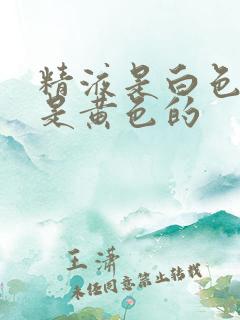 精液是白色
是黄色的
王潇
未经同意禁止转载